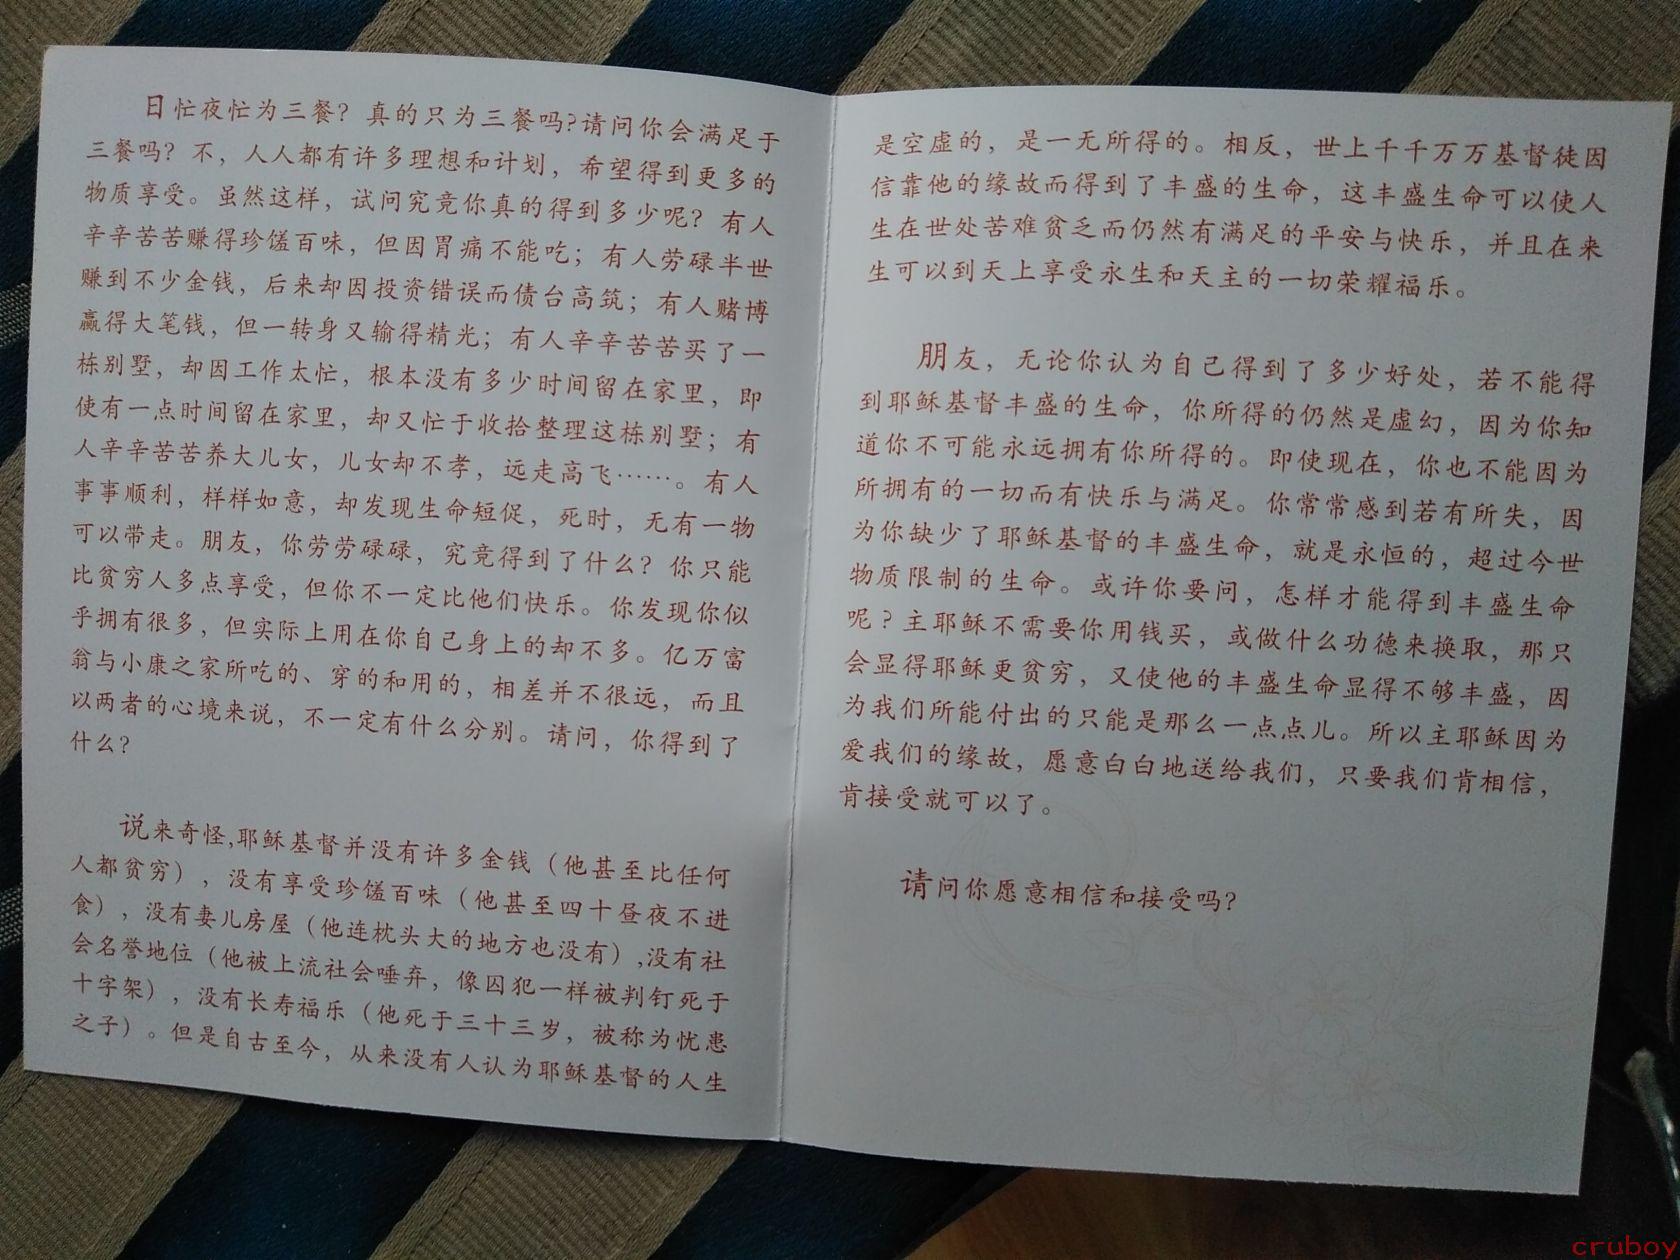 日忙夜忙为三餐？真的只为三餐吗?请问你会满足于
三餐吗？不，人人都有许多理想和计划，希望得到更多的
物质享受。虽然这样，试问究竟你真的得到多少呢？有人
辛辛苦苦赚得珍馐百味，但因胃痛不能吃；有人劳碌半世
赚到不少金钱，后来却因投资错误而债台高筑；有人赌博
赢得大笔钱，但一转身又输得精光；有人辛辛苦苦买了一
栋别墅，却因工作太忙，根本没有多少时间留在家里，即
使有一点时间留在家里，却又忙于收拾整理这栋别墅；有
人辛辛苦苦养大儿女，儿女却不孝，远走高飞……。有人
事事顺利，样样如意，却发现生命短促，死时，无有一物
可以带走。朋友，你劳劳碌碌，究竟得到了什么？你只能
比贫穷人多点享受，但你不一定比他们快乐。你发现你似
乎拥有很多，但实际上用在你自己身上的却不多。亿万富
翁与小康之家所吃的、穿的和用的，相差并不很远，而且
以两者的心境来说，不一定有什么分别。请问，你得到了
什么？
说来奇怪,耶稣基督并没有许多金钱（他甚至比任何
人都贫穷），没有享受珍馐百味（他甚至四十昼夜不进
食），没有妻儿房屋（他连枕头大的地方也没有）,没有社
会名誉地位（他被上流社会唾弃，像囚犯一样被判钉死于
十字架），没有长寿福乐（他死于三十三岁，被称为忧患
之子）。但是自古至今，从来没有人认为耶稣基督的人生
是空虚的，是一无所得的。相反，世上千千万万基督徒因
信靠他的缘故而得到了丰盛的生命，这丰盛生命可以使人
生在世处苦难贫乏而仍然有满足的平安与快乐，并且在来
生可以到天上享受永生和天主的一切荣耀福乐。
朋友，无论你认为自己得到了多少好处，若不能得
到耶稣基督丰盛的生命，你所得的仍然是虚幻，因为你知
道你不可能永远拥有你所得的。即使现在，你也不能因为
所拥有的一切而有快乐与满足。你常常感到若有所失，因
为你缺少了耶稣基督的丰盛生命，就是永恒的，超过今世
物质限制的生命。或许你要问，怎样才能得到丰盛生命
呢？主耶稣不需要你用钱买，或做什么功德来换取，那只
会显得耶稣更贫穷，又使他的丰盛生命显得不够丰盛，因
为我们所能付出的只能是那么一点点儿。所以主耶稣因为
爱我们的缘故，愿意白白地送给我们，只要我们肯相信，
肯接受就可以了。
请问你愿意相信和接受吗？
cruboy